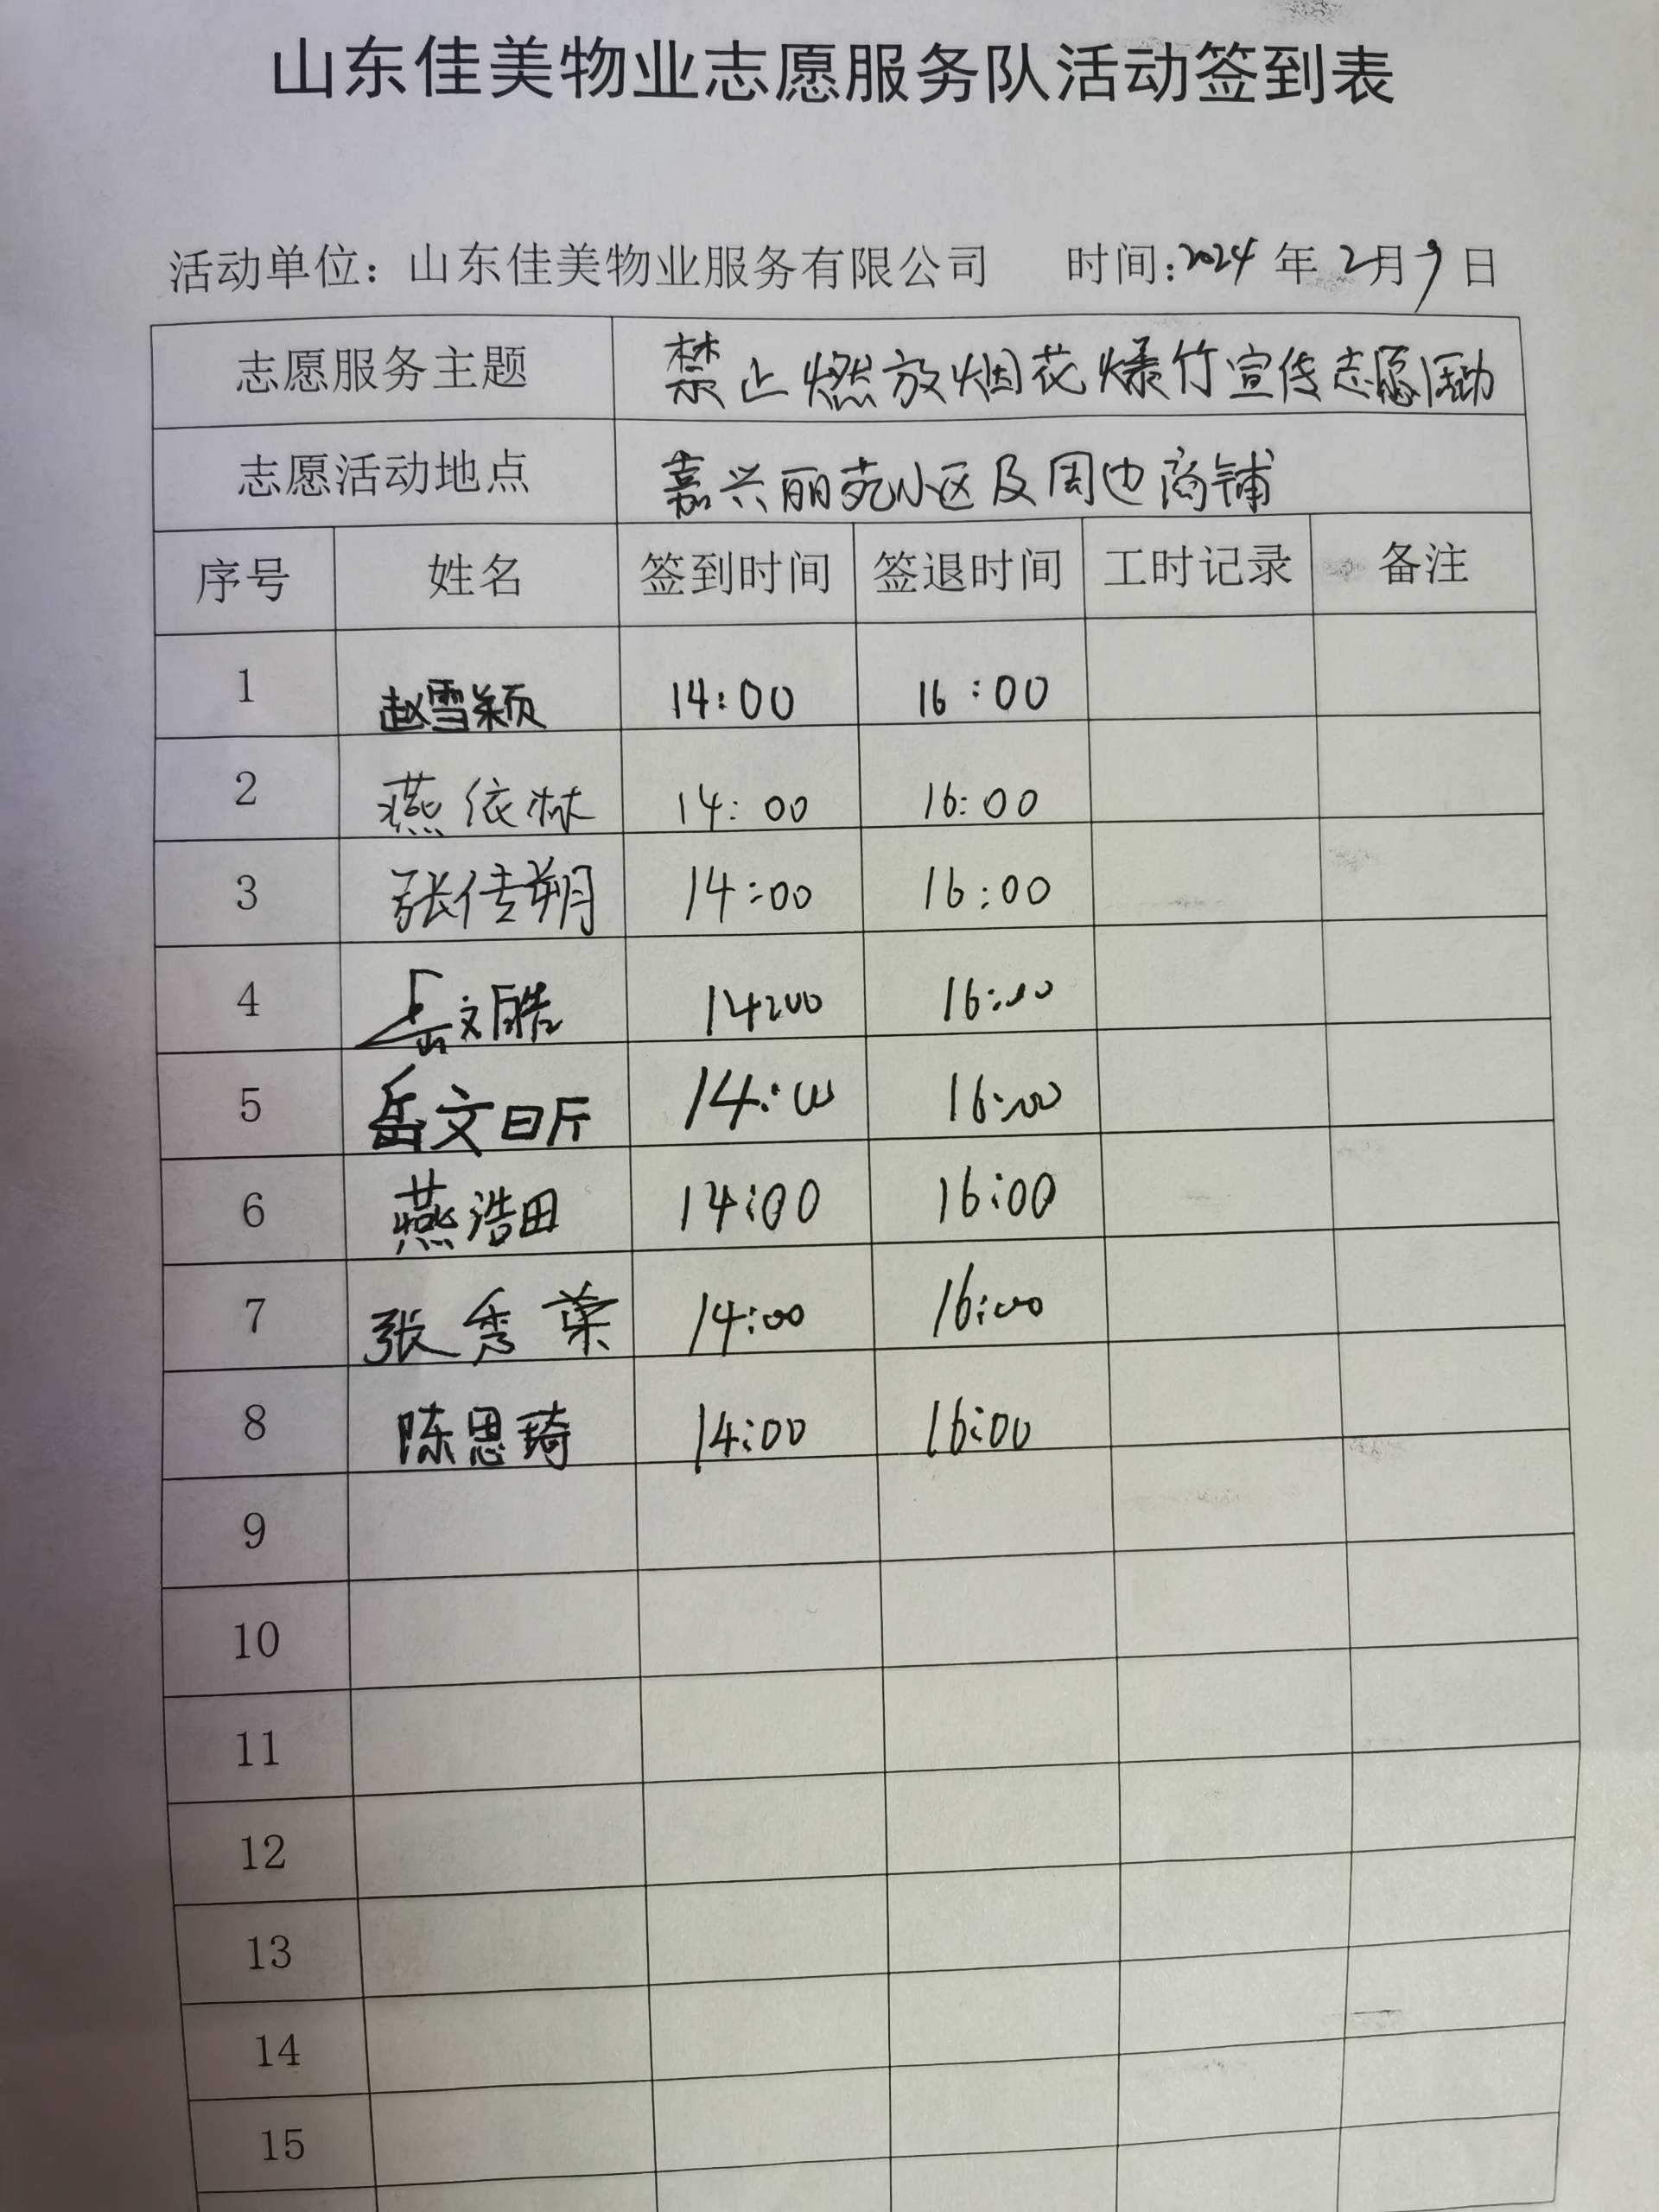 山东佳美物业志愿服务队活动签到表
活动单位：山东佳美物业服务有限公司 时间:2024 年 2月9日
志愿服务主题 禁止燃放烟花爆竹宣传志愿活动
志愿活动地点 嘉兴丽苑小区及周边商铺
序号 姓名 签到时间 签退时间 工时记录 备注
1 赵雪颖 14:00 16:00
2 燕依林 14:00 16:00
3 张传朔 14:00 16:00
4 岳文皓 14:00 16:00
5 岳文昕 14:00 16:00
6 燕浩田 14:00 16:00
7 张秀荣 14:00 16:00
8 陈思琦 14:00 16:00
9
10
11
12
13
14
15